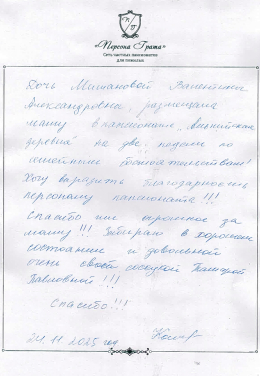 «Персона Грата»
Сеть частных пансионатов
для пожилых
Дочь Милановой Валентины
Александровны, размещала
маму в пансионате "Альпийская
деревня" на две недели по
семейным обстоятельствам!
Хочу выразить благодарность
персоналу пансионата!!!
Спасибо им огромное за
маму!!! Забираю в хорошем
состоянии и довольной
очень своей соседкой Тамарой
Павловной!!!
Спасибо!!!
24.11.2025 год